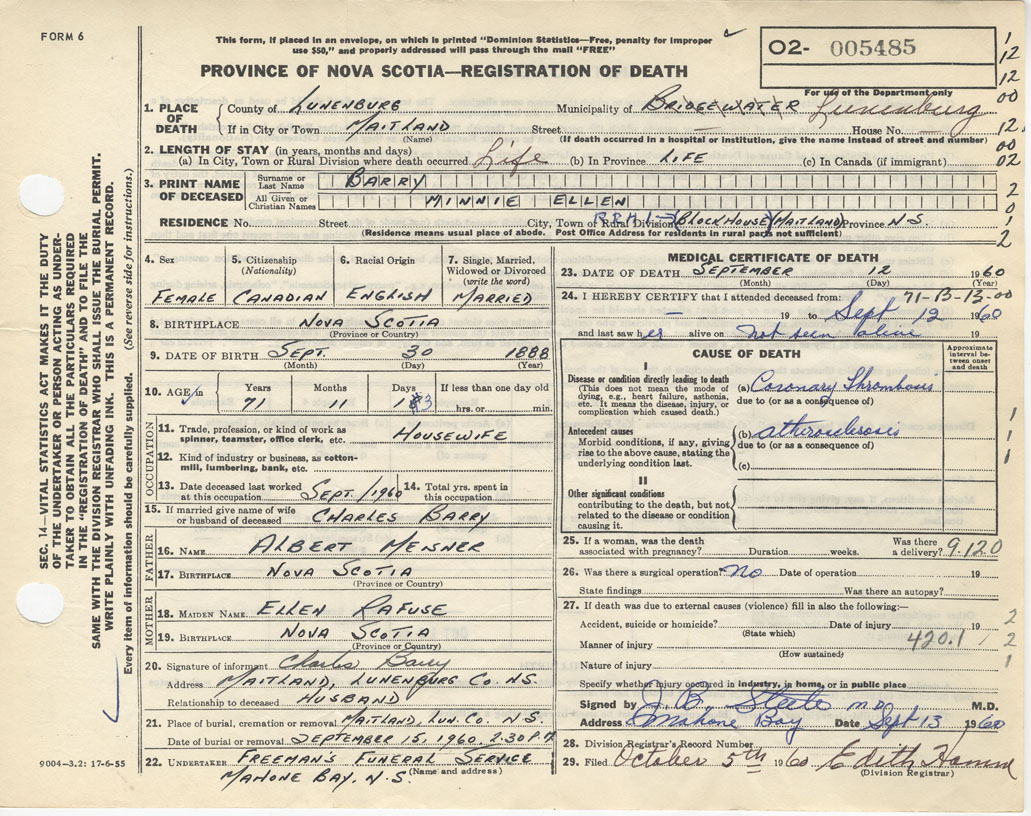 FORM 6
This form, if placed in an envelope, on which is printed "Dominion Statistics—Free, penalty for improper
use $50," and properly addressed will pass through the mail "FREE"
O2- 005485
PROVINCE OF NOVA SCOTIA—REGISTRATION OF DEATH
For use of the Department only
1. PLACE OF DEATH
County of LUNENBURG Municipality of BRIDGEWATER Lunenburg
If in City or Town MAITLAND Street — House No. —
(Name) (If death occurred in a hospital or institution, give the name instead of street and number)
2. LENGTH OF STAY (in years, months and days)
(a) In City, Town or Rural Division where death occurred Life (b) In Province LIFE (c) In Canada (if immigrant)
3. PRINT NAME OF DECEASED
Surname or Last Name BARRY
All Given or Christian Names MINNIE ELLEN
RESIDENCE No. Street City, Town or Rural Division R.R.#1- (BLOCKHOUSE) (MAITLAND) Province N.S.
(Residence means usual place of abode. Post Office Address for residents in rural parts not sufficient)
4. Sex
FEMALE
5. Citizenship (Nationality)
CANADIAN
6. Racial Origin
ENGLISH
7. Single, Married, Widowed or Divorced (write the word)
MARRIED
8. BIRTHPLACE NOVA SCOTIA
(Province or Country)
9. DATE OF BIRTH SEPT. 30 1888
(Month) (Day) (Year)
10. AGE in Years Months Days If less than one day old
71 11 13 hrs. or min.
OCCUPATION
11. Trade, profession, or kind of work as spinner, teamster, office clerk, etc. HOUSEWIFE
12. Kind of industry or business, as cotton-mill, lumbering, bank, etc.
13. Date deceased last worked at this occupation SEPT./1960
14. Total yrs. spent in this occupation
15. If married give name of wife or husband of deceased CHARLES BARRY
FATHER
16. NAME ALBERT MEISNER
17. BIRTHPLACE NOVA SCOTIA
(Province or Country)
MOTHER
18. MAIDEN NAME ELLEN RAFUSE
19. BIRTHPLACE NOVA SCOTIA
(Province or Country)
20. Signature of informant Charles Barry
Address MAITLAND, LUNENBURG CO. N.S.
Relationship to deceased HUSBAND
21. Place of burial, cremation or removal MAITLAND, LUN. CO. N.S.
Date of burial or removal SEPTEMBER 15, 1960 2.30 P.M
22. UNDERTAKER FREEMAN'S FUNERAL SERVICE
MAHONE BAY, N.S. (Name and address)
MEDICAL CERTIFICATE OF DEATH
23. DATE OF DEATH SEPTEMBER 12 1960
(Month) (Day) (Year)
24. I HEREBY CERTIFY that I attended deceased from: 71-B-13-00
— 19 to Sept 12 1960
and last saw her alive on Not seen alive 19
CAUSE OF DEATH
Approximate interval between onset and death
I
Disease or condition directly leading to death
(This does not mean the mode of dying, e.g., heart failure, asthenia, etc. It means the disease, injury, or complication which caused death.)
(a) Coronary Thrombosis
due to (or as a consequence of)
Antecedent causes
Morbid conditions, if any, giving rise to the above cause, stating the underlying condition last.
(b)
due to (or as a consequence of)
(c)
II
Other significant conditions
contributing to the death, but not related to the disease or condition causing it.
25. If a woman, was the death associated with pregnancy? Duration weeks. Was there a delivery? 9.120
26. Was there a surgical operation? No Date of operation 19
State findings Was there an autopsy?
27. If death was due to external causes (violence) fill in also the following:—
Accident, suicide or homicide? Date of injury 19
(State which)
Manner of injury 420.1
(How sustained)
Nature of injury
Specify whether injury occurred in industry, in home, or in public place
Signed by J. B. Steele M.D. M.D.
Address Mahone Bay Date Sept 13 1960
28. Division Registrar's Record Number
29. Filed October 5th 1960 Edith Hamm
(Division Registrar)
SEC. 14—VITAL STATISTICS ACT MAKES IT THE DUTY
OF THE UNDERTAKER OR PERSON ACTING AS UNDER-
TAKER TO OBTAIN ALL THE PARTICULARS REQUIRED
IN THE "REGISTRATION OF DEATH" AND TO FILE THE
SAME WITH THE DIVISION REGISTRAR WHO SHALL ISSUE THE BURIAL PERMIT.
WRITE PLAINLY WITH UNFADING INK. THIS IS A PERMANENT RECORD.
Every item of information should be carefully supplied. (See reverse side for instructions.)
9004—3.2: 17-6-55
1
12
12
00
12.
00
02
2
0
1
2
1
1
1
2
2
1